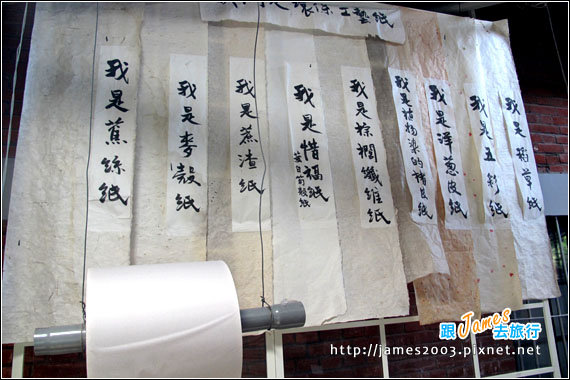 環保工藝紙
我是蕉絲紙
我是麥殼紙
我是蔗渣紙
我是惜福紙
茭白筍殼紙
我是棕櫚纖維紙
我是植物染的楮皮紙
我是洋蔥皮紙
我是五彩紙
我是稻草紙
跟James去旅行
http://james2003.pixnet.net